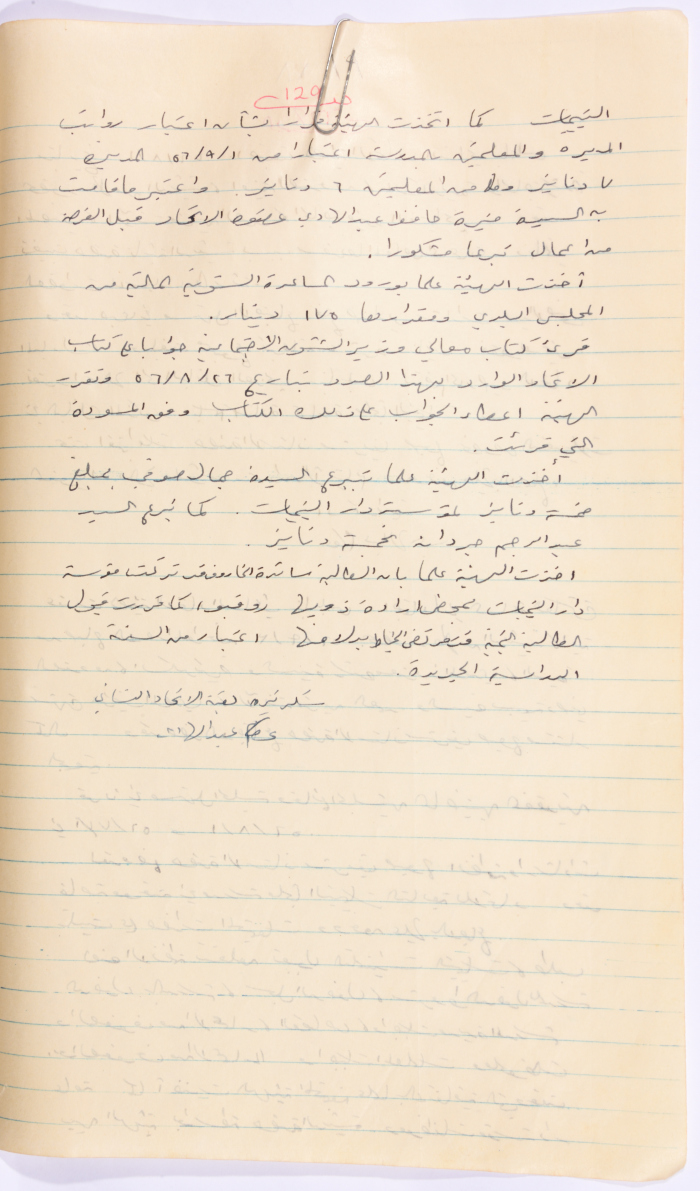 ص 129
اليتيمات كما اتخذت الهيئة قرارا بشأن اعتبار رواتب
المديرة والمعلمتين بالمدرسة اعتبارا من ٥٦/٩/١ المديرة
٧ دنانير وكل من المعلمتين ٦ دنانير واعتبر ما قامت
به السيدة منيرة حافظ عبد الهادي عضوة الاتحاد قبل الفرصة
من اعمال تبرعا مشكورا.
أخذت الهيئة علما بورود المساعدة السنوية المالية من
المجلس البلدي ومقدارها ١٧٥ دينار.
قرئ كتاب معالي وزير الشئون الاجتماعية جوابا على كتاب
الاتحاد الوارد بهذا الصدد بتاريخ ٥٦/٨/٢٦ وتقرر
الهيئة اعطاء الجواب على ذلك الكتاب وفق المسودة
التي قرئت.
أخذت الهيئة علما بتبرع السيدة جمال صوفي بمبلغ
خمسة دنانير لمؤسسة دار اليتيمات. كما تبرع السيد
عبد الرحيم جردانه بخمسة دنانير.
اخذت الهيئة علما بان الطالبة قد تركت مؤسسة
دار اليتيمات بمحض ارادة ذويها كما قررت قبول
الطالبة اليتيمة الخياط بدلا منها اعتبار من السنة
الدراسية الجديدة.
سكرتيرة لجنة الاتحاد النسائي
عصام عبد الهادي